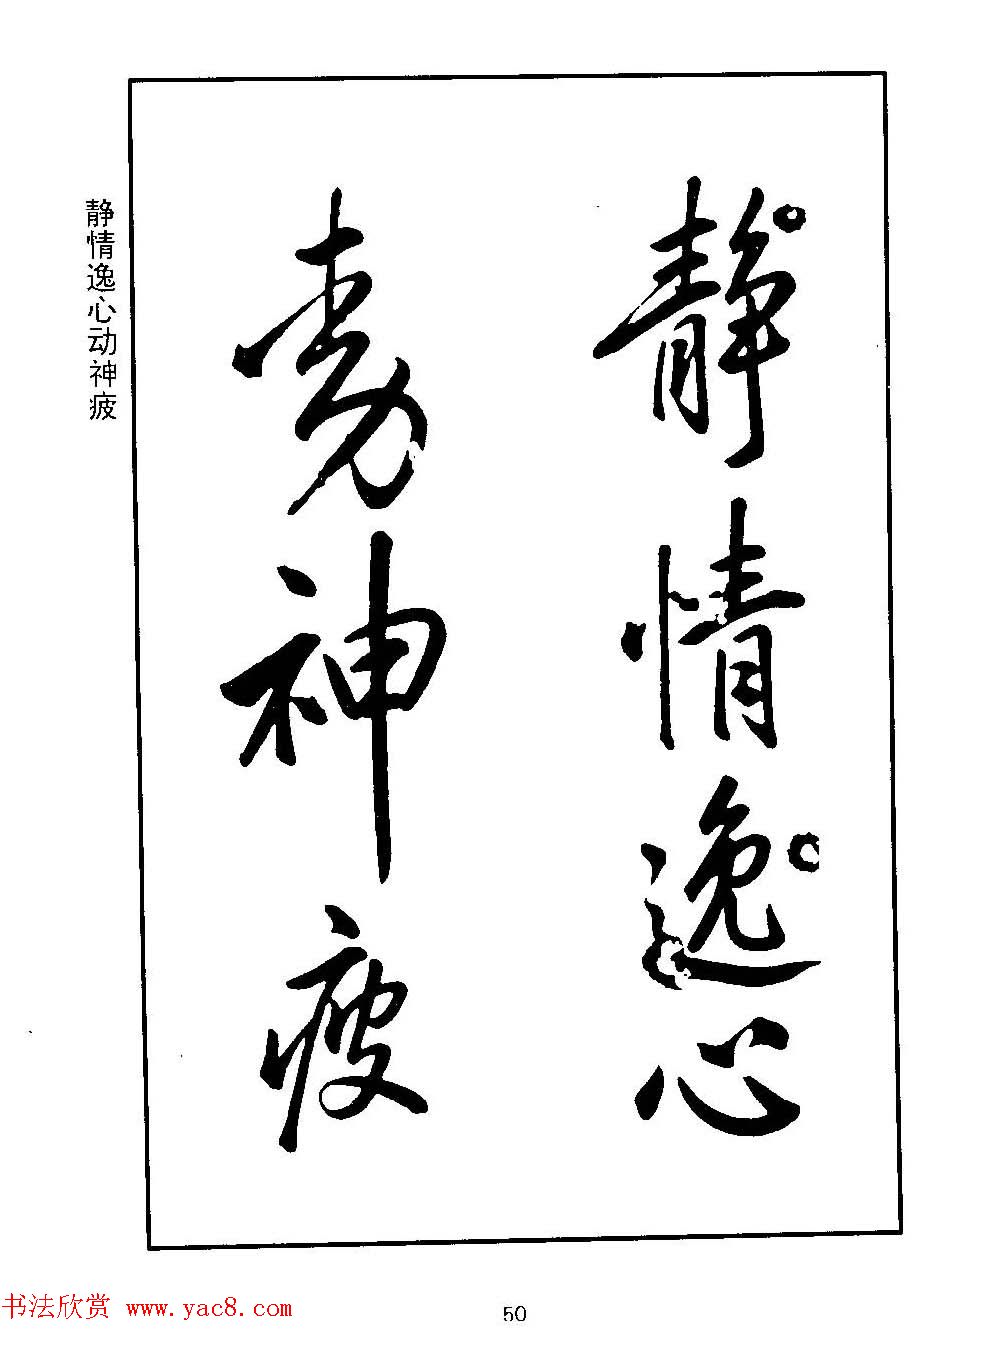 静情逸心
動神疲
静情逸心动神疲
书法欣赏 www.yac8.com
50